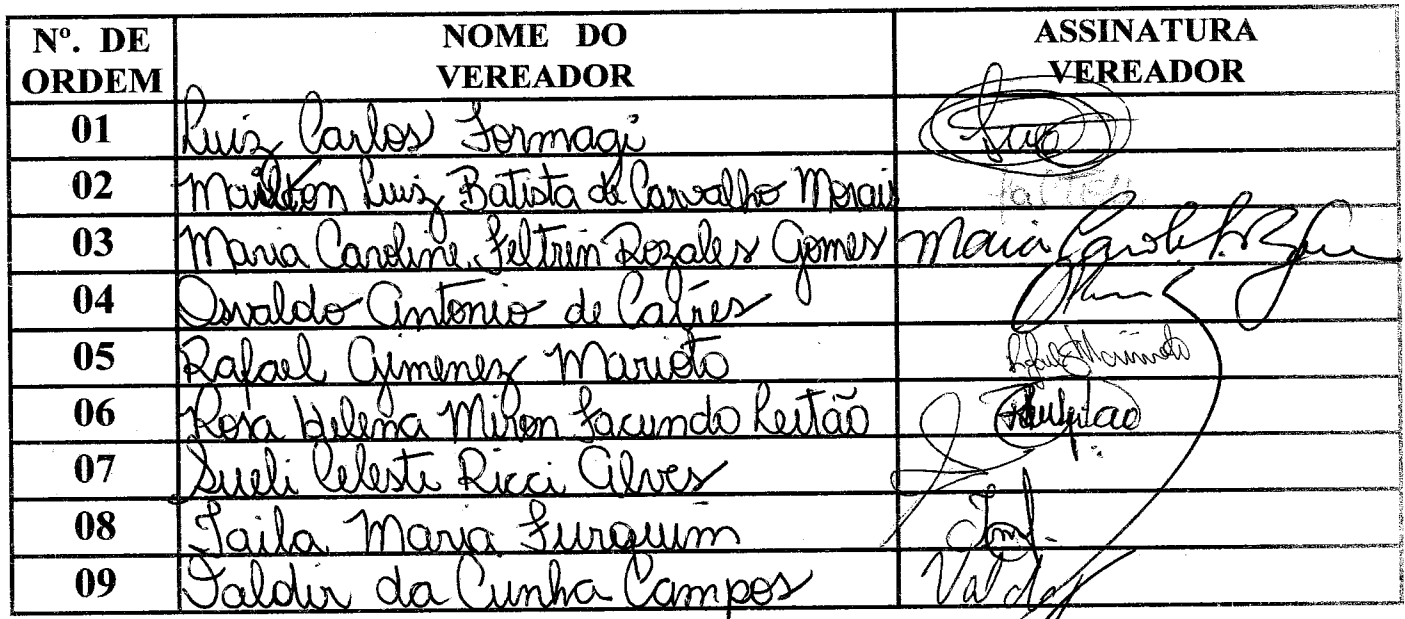 Nº. DE ORDEM NOME DO VEREADOR ASSINATURA VEREADOR
01 Luiz Carlos Formagi
02 Mailton Luiz Batista de Carvalho Morais
03 Maria Caroline Feltrin Rozales Gomes Maria
04 Osvaldo Antonio de
05 Rafael Gimenez Marioto
06 Rosa Helena Miron Facundo Leitão
07 Sueli Celeste Ricci Alves
08 Taila Maria Furquim
09 Valdir da Cunha Campos